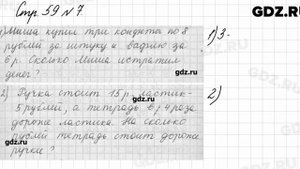 Стр. 59 № 7
ZDROK.RU
1) Миша купил три конфеты по 8
рублей за штуку и вафлю за
6 р. Сколько Миша истратил
денег?
gdz.ru
gdz.ru
1) 3-
2) Ручка стоит 15 р. ластик-
5 рублей, а тетрадь в 4 раза
дороже ластика. На сколько
рублей тетрадь стоит дороже
ручки?
gdz.ru
gdz.ru
2)